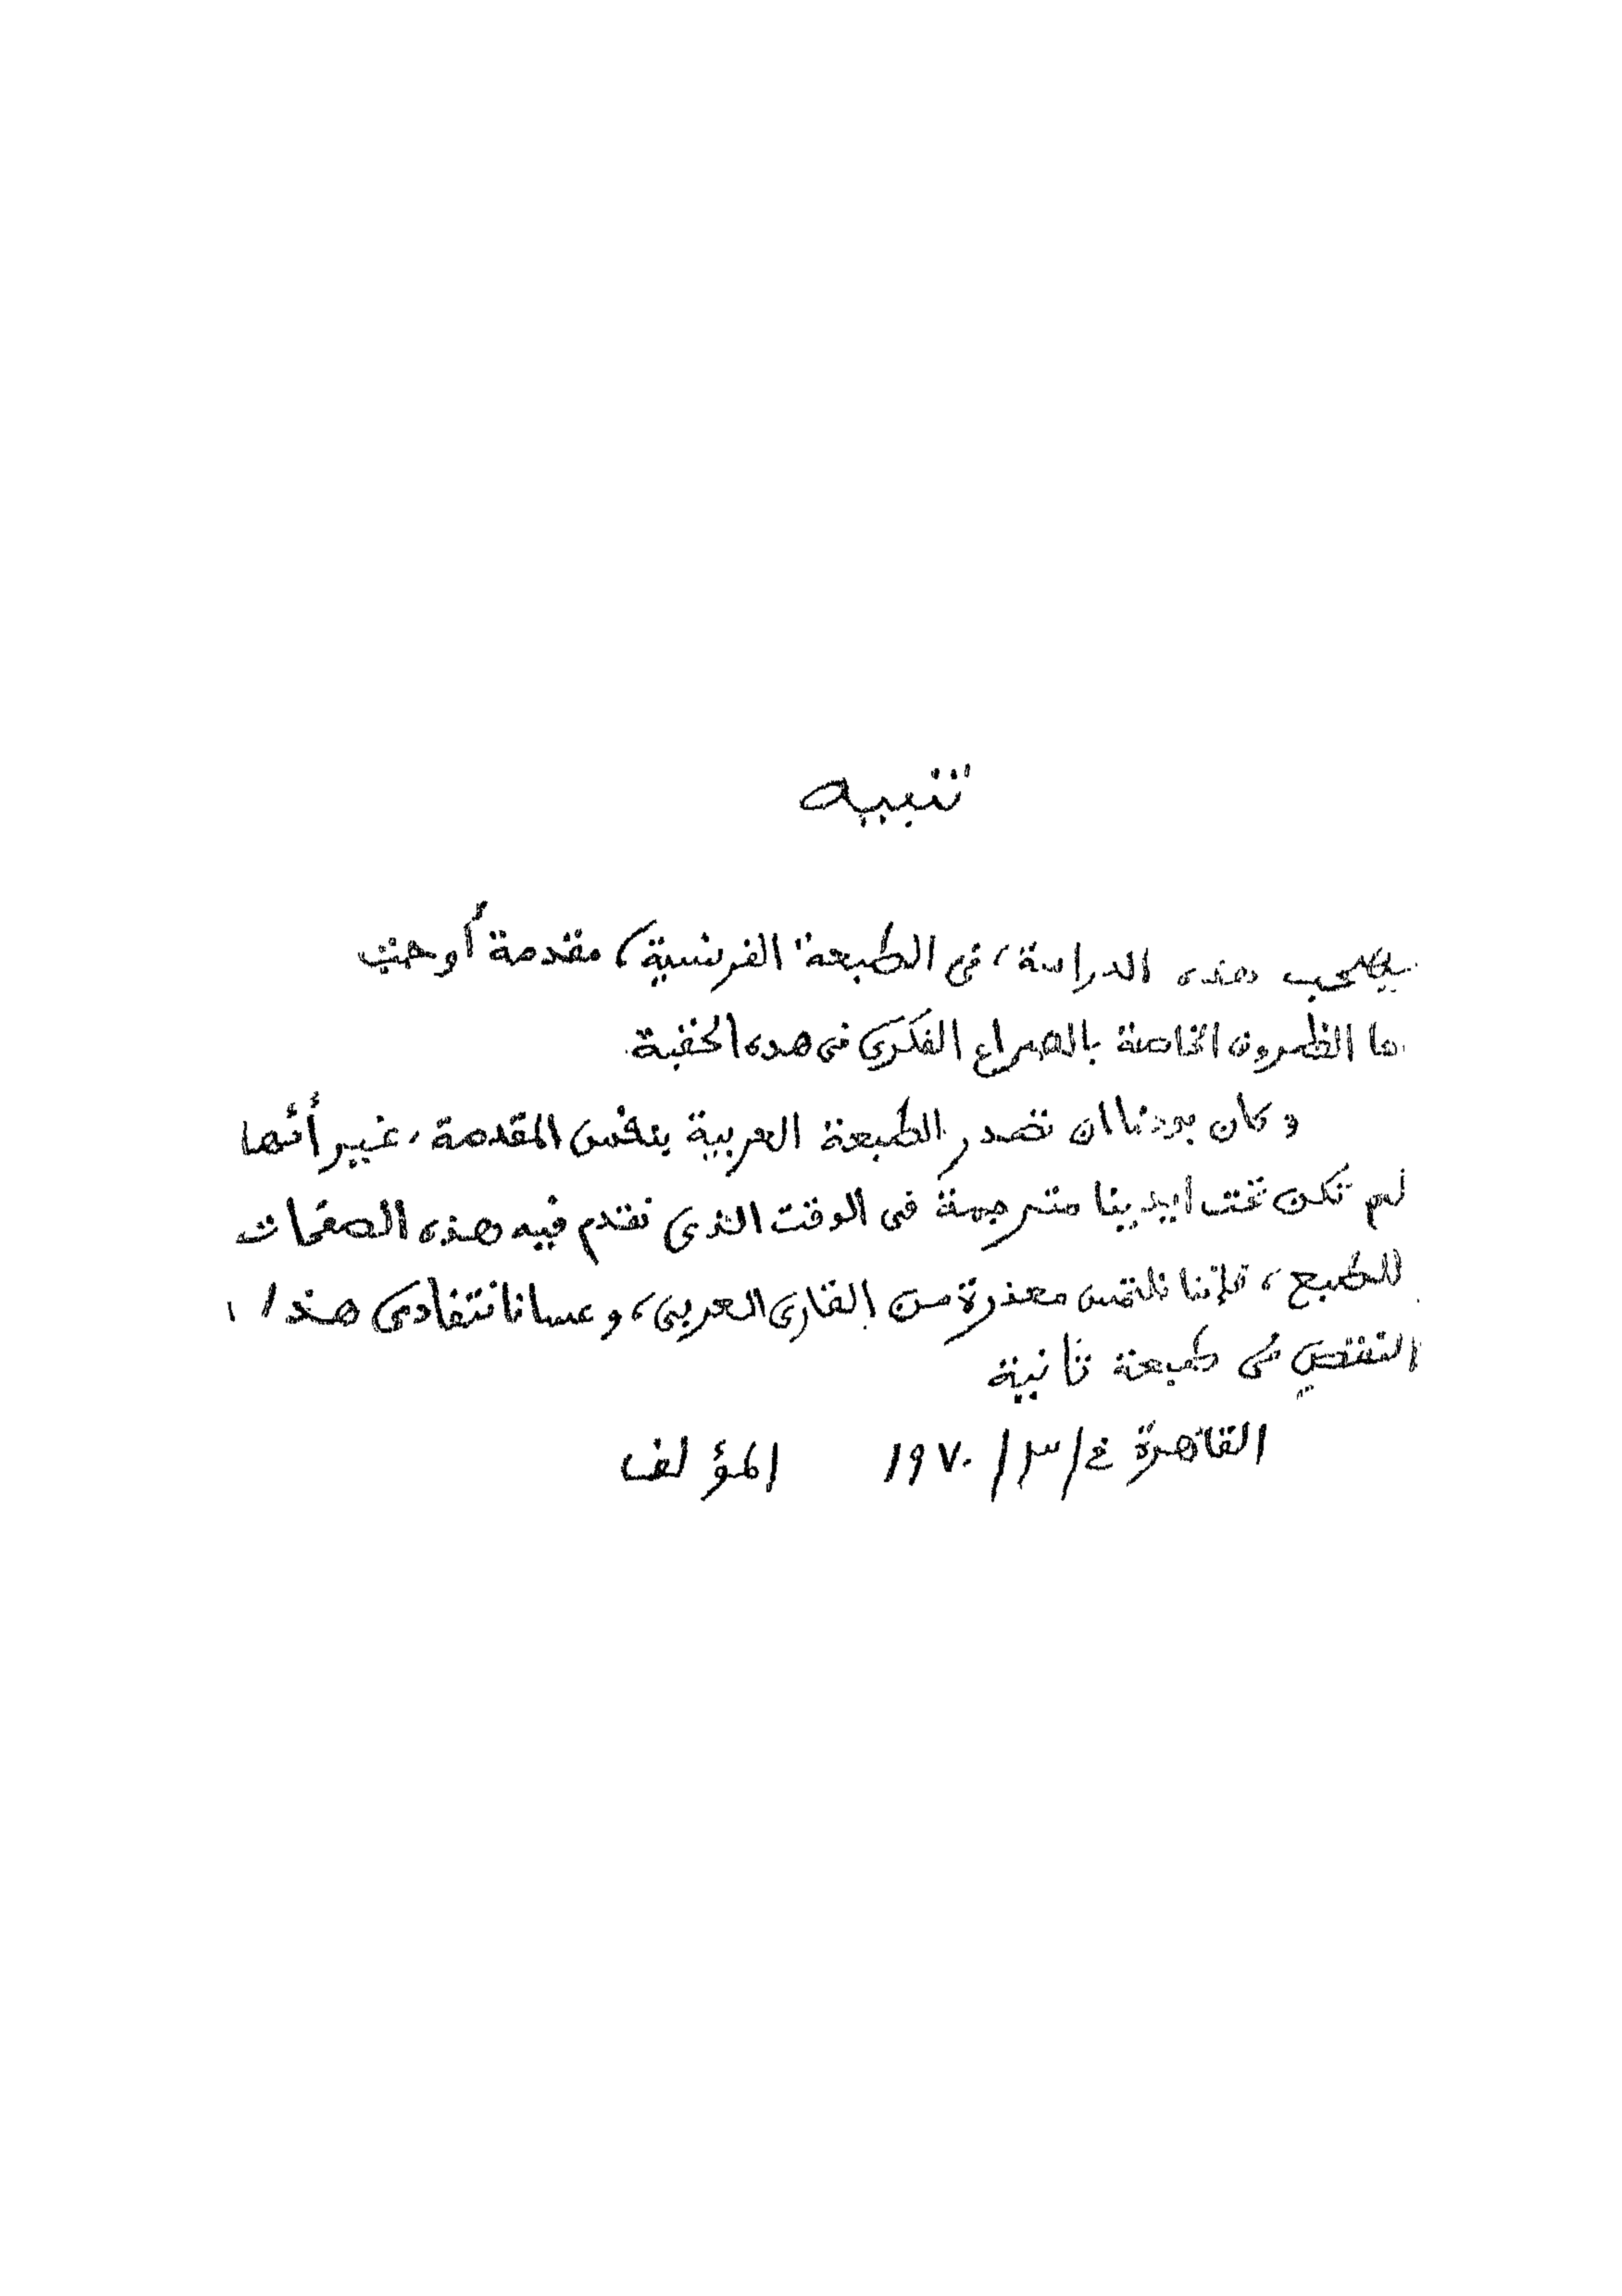 تنبيه
يصحب هذه الدراسة، فى الطبعة الفرنسية، مقدمة أوحت
ها الظروف الخاصة بالصراع الفكرى فى هذه الحقبة.
وكان بودنا ان تصدر الطبعة العربية بنفس المقدمة، غير أنها
لم تكن تحت ايدينا مترجمة فى الوقت الذى نقدم فيه هذه الصفحات
للطبع، فإننا نلتمس معذرة من القارى العربى، وعسانا نتفادى هذا
النقص فى طبعة ثانية
القاهرة ٤/٣/١٩٧٠ المؤلف